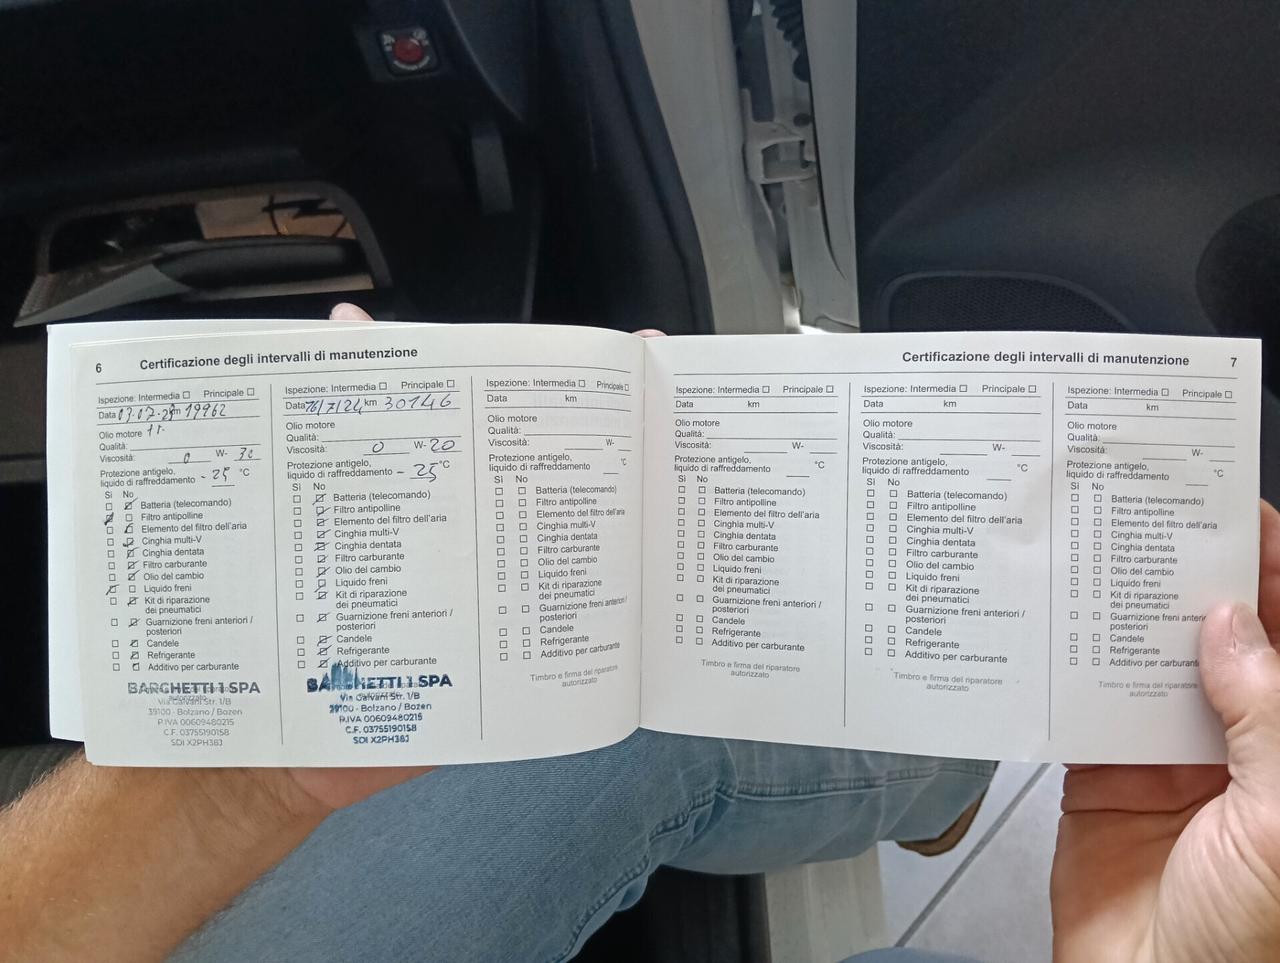 6 Certificazione degli intervalli di manutenzione
Ispezione: Intermedia ☐ Principale ☐
Data km 19962
Olio motore
Qualità:
Viscosità: 0 W- 30
Protezione antigelo,
liquido di raffreddamento - 25 °C
Sì No
Batteria (telecomando)
Filtro antipolline
Elemento del filtro dell'aria
Cinghia multi-V
Cinghia dentata
Filtro carburante
Olio del cambio
Liquido freni
Kit di riparazione
dei pneumatici
Guarnizione freni anteriori /
posteriori
Candele
Refrigerante
Additivo per carburante
BARCHETTI SPA
autorizzato
Via Galvani Str. 1/B
39100 - Bolzano / Bozen
P.IVA 00609480215
C.F. 03755190158
SDI X2PH38J
Ispezione: Intermedia ☐ Principale ☐
Data 16/7/24 km 30146
Olio motore
Qualità:
Viscosità: 0 W- 20
Protezione antigelo,
liquido di raffreddamento - 25 °C
Sì No
Batteria (telecomando)
Filtro antipolline
Elemento del filtro dell'aria
Cinghia multi-V
Cinghia dentata
Filtro carburante
Olio del cambio
Liquido freni
Kit di riparazione
dei pneumatici
Guarnizione freni anteriori /
posteriori
Candele
Refrigerante
Additivo per carburante
BARCHETTI SPA
Via Galvani Str. 1/B
39100 - Bolzano / Bozen
P.IVA 00609480215
C.F. 03755190158
SDI X2PH38J
Ispezione: Intermedia ☐ Principale ☐
Data km
Olio motore
Qualità:
Viscosità: W-
Protezione antigelo,
liquido di raffreddamento °C
Sì No
Batteria (telecomando)
Filtro antipolline
Elemento del filtro dell'aria
Cinghia multi-V
Cinghia dentata
Filtro carburante
Olio del cambio
Liquido freni
Kit di riparazione
dei pneumatici
Guarnizione freni anteriori /
posteriori
Candele
Refrigerante
Additivo per carburante
Timbro e firma del riparatore
autorizzato
Certificazione degli intervalli di manutenzione 7
Ispezione: Intermedia ☐ Principale ☐
Data km
Olio motore
Qualità:
Viscosità: W-
Protezione antigelo,
liquido di raffreddamento °C
Sì No
Batteria (telecomando)
Filtro antipolline
Elemento del filtro dell'aria
Cinghia multi-V
Cinghia dentata
Filtro carburante
Olio del cambio
Liquido freni
Kit di riparazione
dei pneumatici
Guarnizione freni anteriori /
posteriori
Candele
Refrigerante
Additivo per carburante
Timbro e firma del riparatore
autorizzato
Ispezione: Intermedia ☐ Principale ☐
Data km
Olio motore
Qualità:
Viscosità: W-
Protezione antigelo,
liquido di raffreddamento °C
Sì No
Batteria (telecomando)
Filtro antipolline
Elemento del filtro dell'aria
Cinghia multi-V
Cinghia dentata
Filtro carburante
Olio del cambio
Liquido freni
Kit di riparazione
dei pneumatici
Guarnizione freni anteriori /
posteriori
Candele
Refrigerante
Additivo per carburante
Timbro e firma del riparatore
autorizzato
Ispezione: Intermedia ☐ Principale ☐
Data km
Olio motore
Qualità:
Viscosità: W-
Protezione antigelo,
liquido di raffreddamento °C
Sì No
Batteria (telecomando)
Filtro antipolline
Elemento del filtro dell'aria
Cinghia multi-V
Cinghia dentata
Filtro carburante
Olio del cambio
Liquido freni
Kit di riparazione
dei pneumatici
Guarnizione freni
posteriori
Candele
Refrigerante
Additivo per carburante
Timbro e firma del riparatore
autorizzato